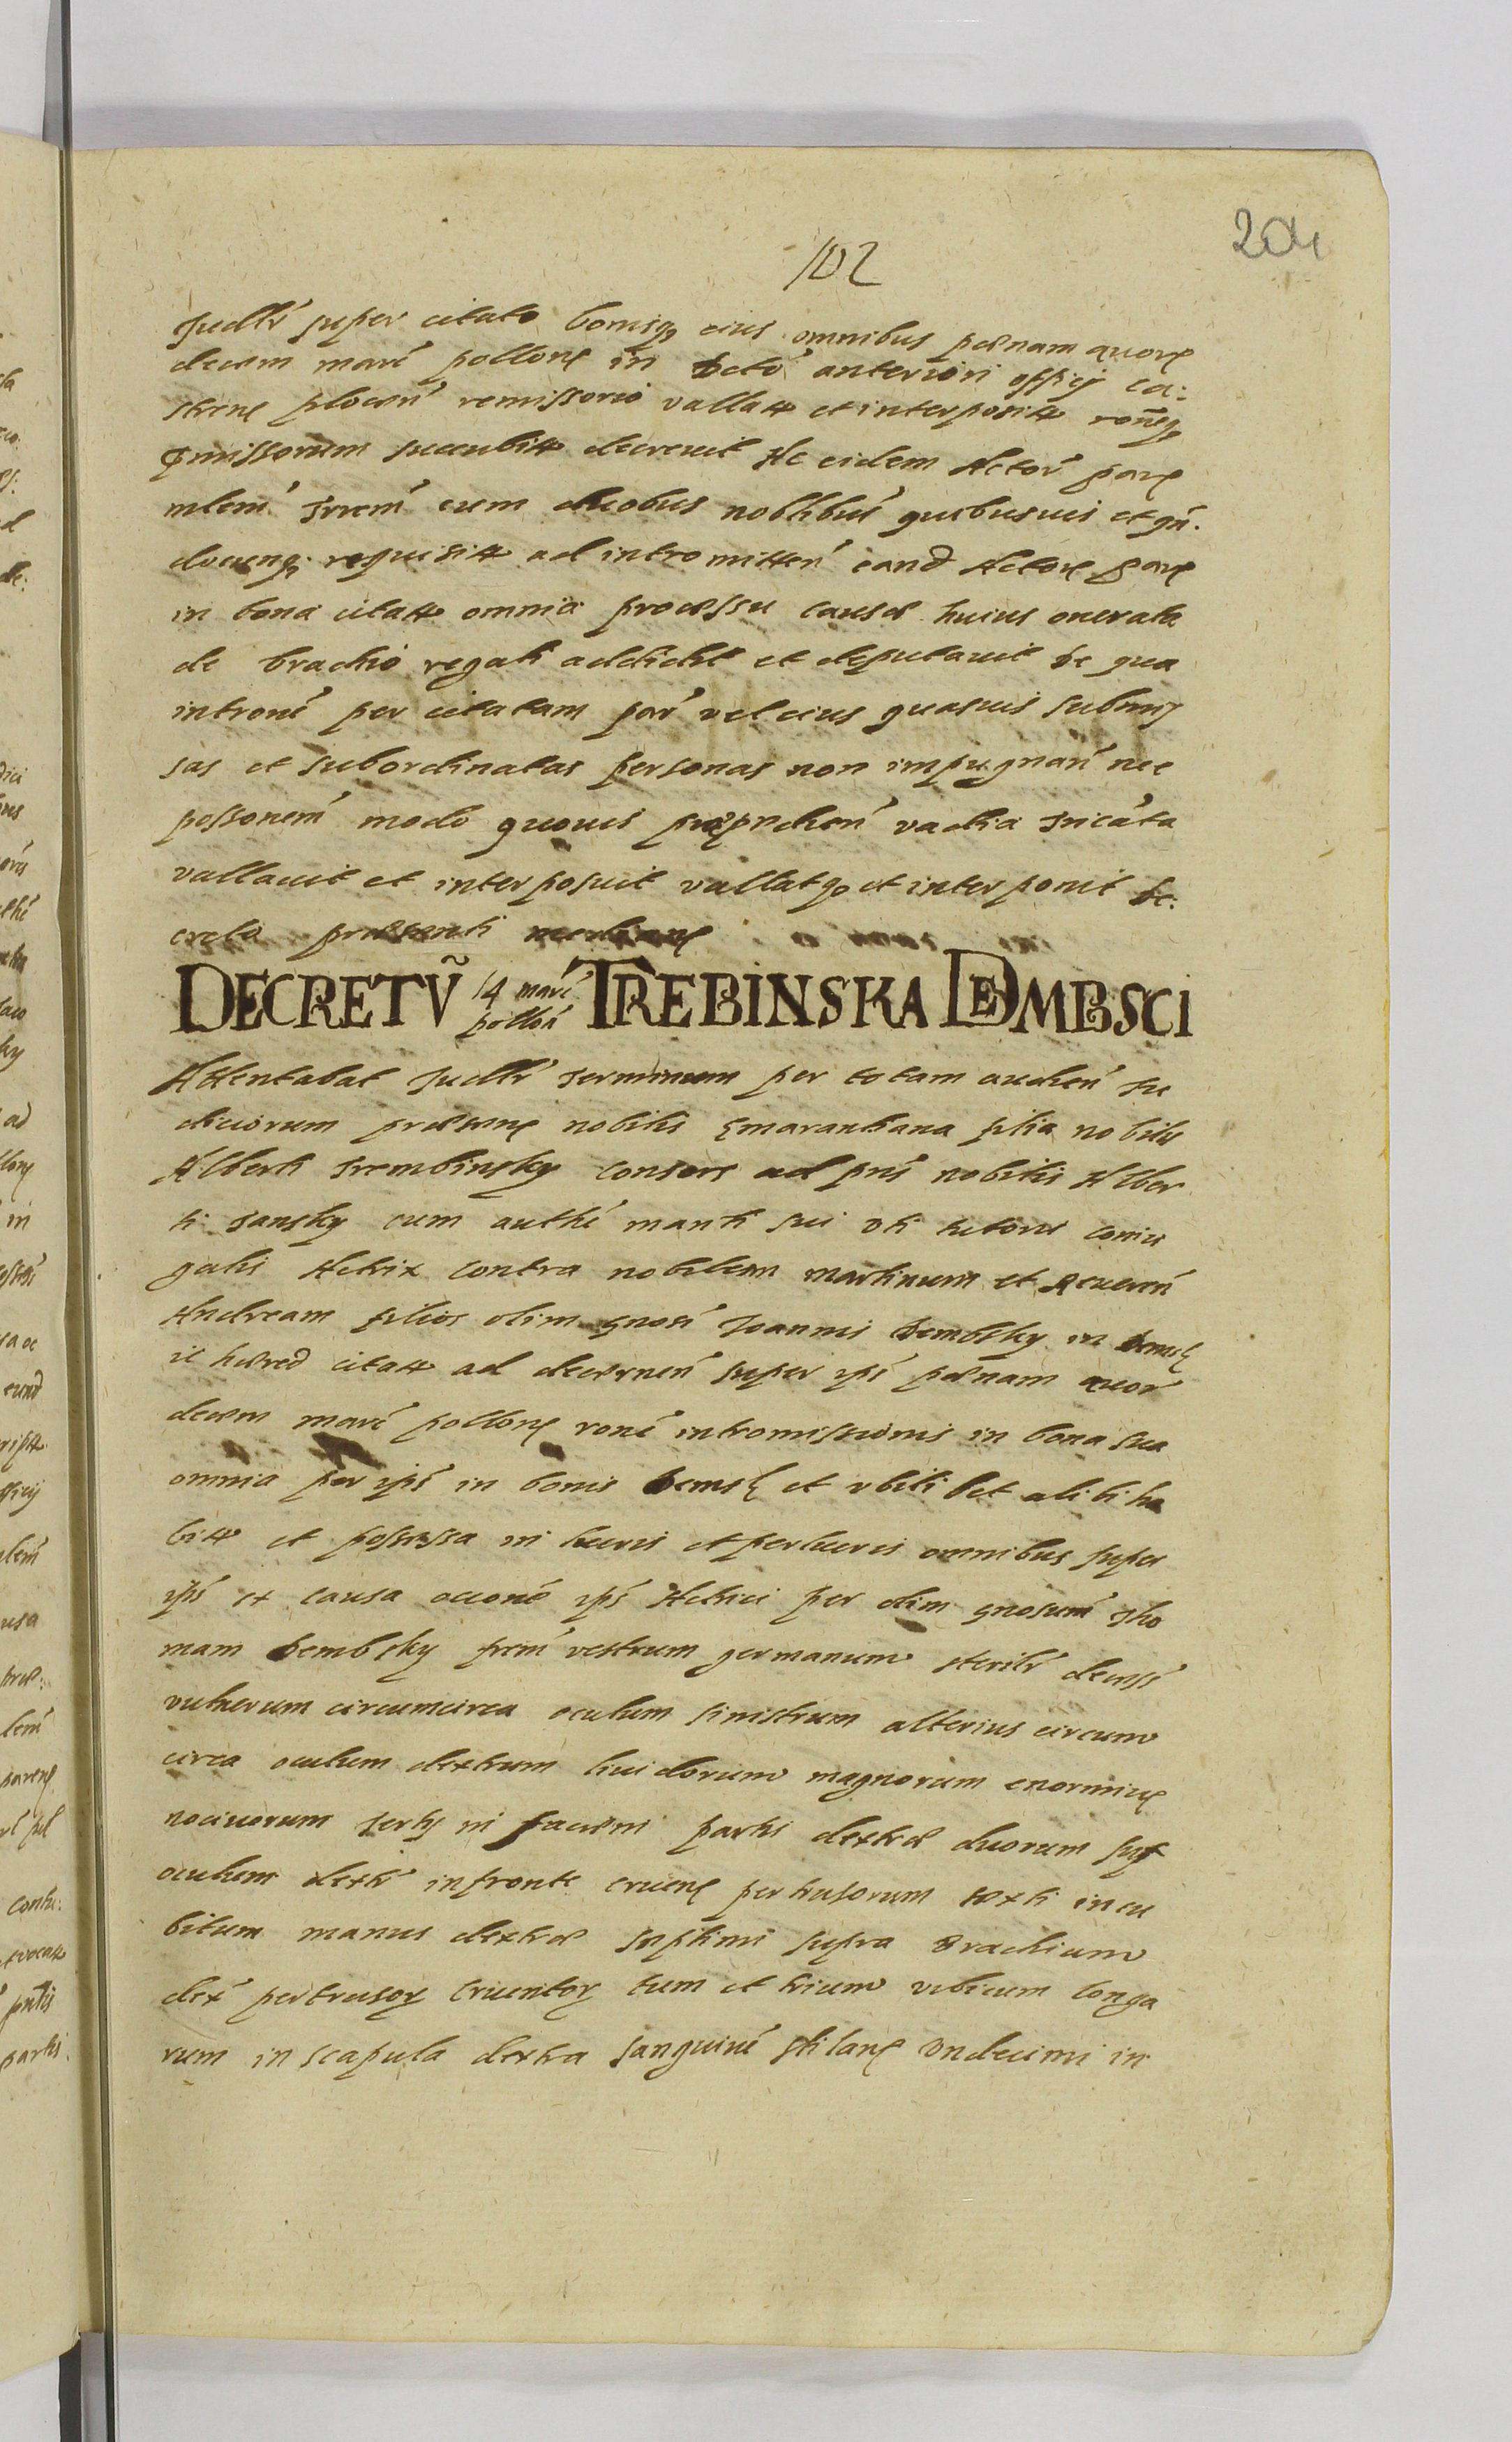 204
102
Judlr super citato bonisq eius omnibus poenam quore
decem marc pollone in Dcto anteriori officij ca:
strens plocen remissorio vallatt et interposita roneq
pmissorum succubitt decreuit Ac eidem Actori pare
mlem Srrem cum duobus noblibus quibusuis et qn:
docunq requisitt ad intromitten eand Actore pare
in bona citatt omnia processu causae huius onerata
de brachio regali addidit et deputauit De qua
introne per citatam par vel eius quasuis submis
sas et subordinatas personas non impugnan nec
possonem modo quouis praeprdien vadia tricata
vallauit et interposuit vallatq et interponit De:
creto praesenti mediane
DECRETV 14 marc pollon TREBINSKA DEMBSCI
Attentabat Judlr terminum per totam audien Ju
diciorum praesens nobilis Emarantiana filia nobilis
Alberti Trembinsky consors ad pns nobilis Alber
ti Jansky cum authe mariti sui vti tutoris coniu
galis Actrix contra nobilem Martinum et Reueren
Andream filios olim gnosi Joannis Dembsky in Dembsk
ie haered citatt ad decernen super ips poenam quor
decem marc pollone rone intromissionis in bona sua
omnia per ips in bonis Demsk et vbilibet alibi ha
bitt et possessa in lucris et perlucris omnibus super
ips ex causa occone ips Actrici per olim gnosum Tho
mam Dembsky frem vestrum germanum sterilr decess
vulnerum circumcirca oculum sinistrum alterius circum
circa oculum dextrum liuidorum magnorum enormius
nociuorum tertij in faciem partis dextrae duorum sup
oculum dextr in fronte cruens pertusorum sexti in cu
bitum manus dextrae septimi supra Brachium
dex pertrusor cruentor tum et trium vibicum longa
rum in scapula dextra sanguine stilans Vndecimi in